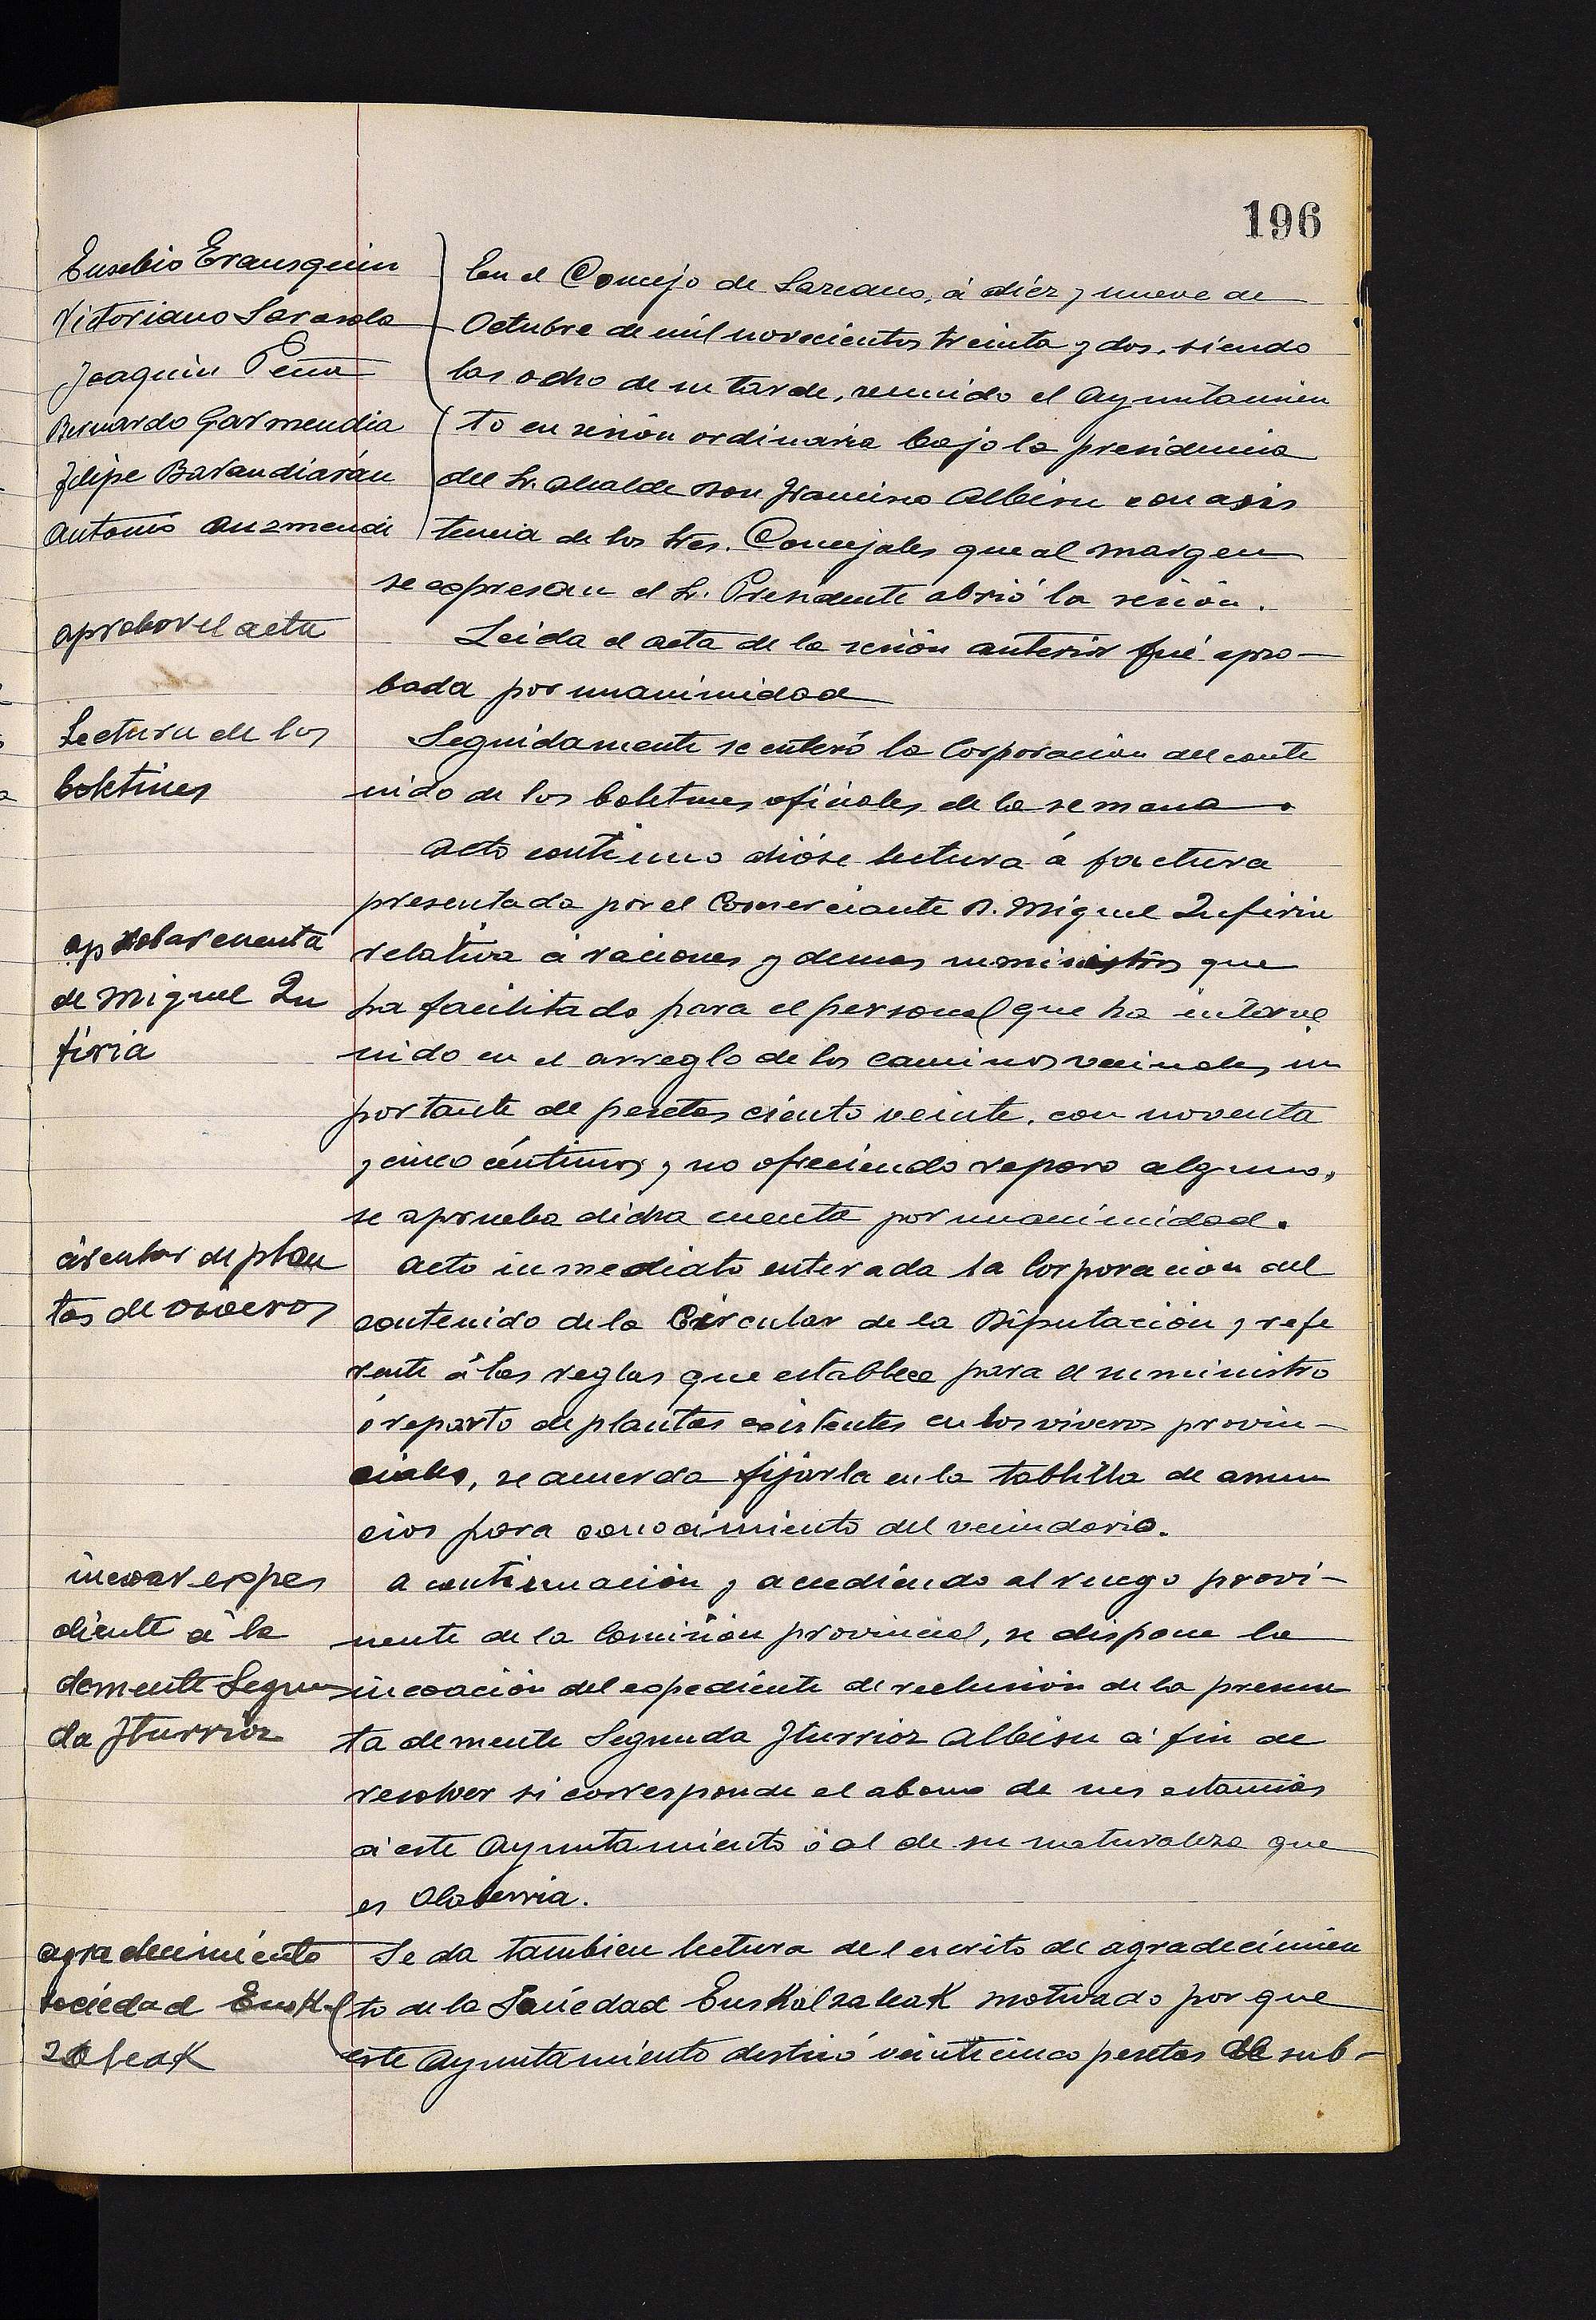 196
Eusebio Erausquin
Victoriano Sarasola
Joaquin Peña
Bernardo Garmendia
Felipe Barandiarán
Antonio Auzmendi
En el Concejo de Lazcano, á diéz y nueve de
Octubre de mil novecientos treinta y dos, siendo
las ocho de su tarde, reunido el Ayuntamien
to en sesión ordinaria bajo la presidencia
del Sr. Alcalde Don Francisco Albisu con asis
tencia de los Sres. Concejales que al margen
se expresan el Sr. Presidente abrió la sesión.
aprobar el acta
Leida el acta de la sesión anterior fué apro-
bada por unanimidad
Lectura de los
boletines
Seguidamente se enteró la Corporación del conte
nido de los boletines oficiales de la semana.
Acto continuo dióse lectura á factura
presentada por el Comerciante D. Miguel
aprobar cuenta
de Miguel
relativa á raciones y demas suministros que
ha facilitado para el personal que ha interve
nido en el arreglo de los caminos vecinales, im
portante de pesetas ciento veinte, con noventa
y cinco céntimos y no ofreciendo reparo alguno,
se aprueba dicha cuenta por unanimidad.
circular de plan
tas de viveros
Acto inmediato enterada la Corporación del
contenido de la Circular de la Diputación y refe
rente á las reglas que establece para el suministro
ó reparto de plantas existentes en los viveros provin-
ciales, se acuerda fijarla en la tablilla de anun
cios para conocimiento del vecindario.
incoar expe
diente á la
demente Segun
da Iturrioz
A continuación y accediendo al ruego provi-
nente de la Comisión provincial, se dispone la
incoación del expediente de reclusión de la presun
ta demente Segunda Iturrioz Albisu á fin de
resolver si corresponde el abono de sus estancias
á este Ayuntamiento ó al de su naturaleza que
es Olaberria.
agradecimiento
sociedad Euskal
zaleak
Se da tambien lectura del escrito de agradecimien
to de la Sociedad Euskalzaleak motivado por que
este Ayuntamiento destinó veinticinco pesetas de sub-